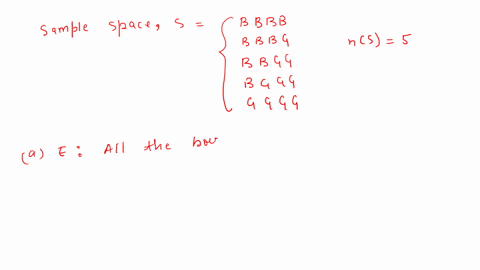 Sample Space, S = { B B B B
B B B G
B B G G
B G G G
G G G G
n(S) = 5
(a) E : All the bo